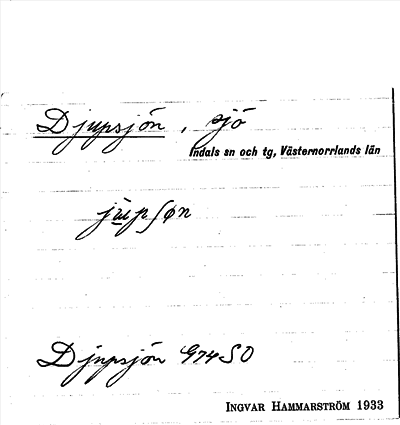 Djupsjön, sjö
Indals sn och tg, Västernorrlands län
Djupsjön G74 SO
INGVAR HAMMARSTRÖM 1933